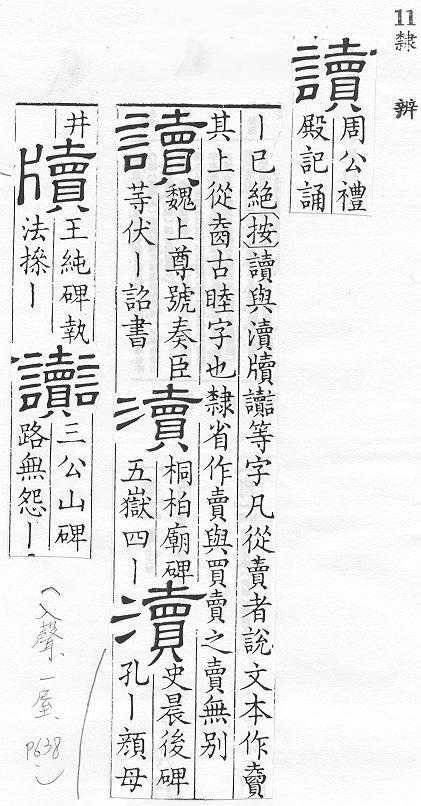 11 隸 辨
讀
周公禮
殿記誦
ー已絕 按 讀與瀆牘讟等字凡從𧶠者說文本作𧶠
其上從古睦字也隸省作賣與買賣之賣無別
讀
魏上尊號奏臣
等伏ー詔書
瀆
桐柏廟碑
五嶽四ー
瀆
史晨後碑
孔ー顏母
井
牘
王純碑執
法摻ー
讟
三公山碑
路無怨ー。
(入聲、一屋 P638)